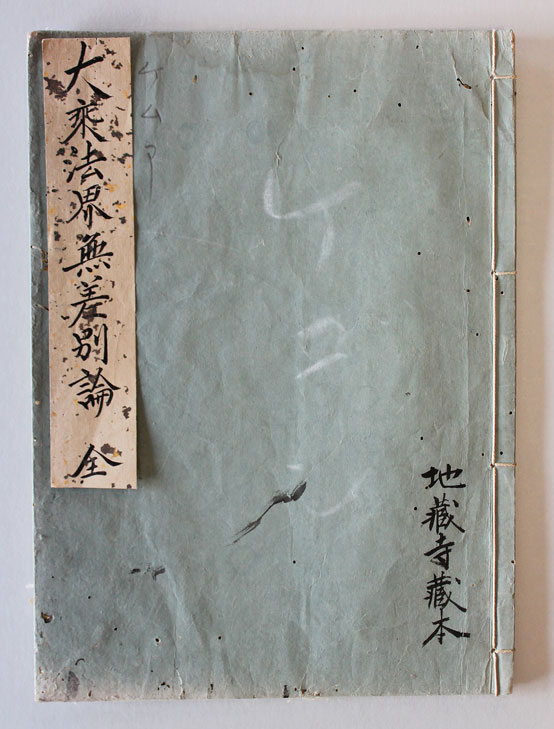 大乘法界無差別論 全
地藏寺藏本